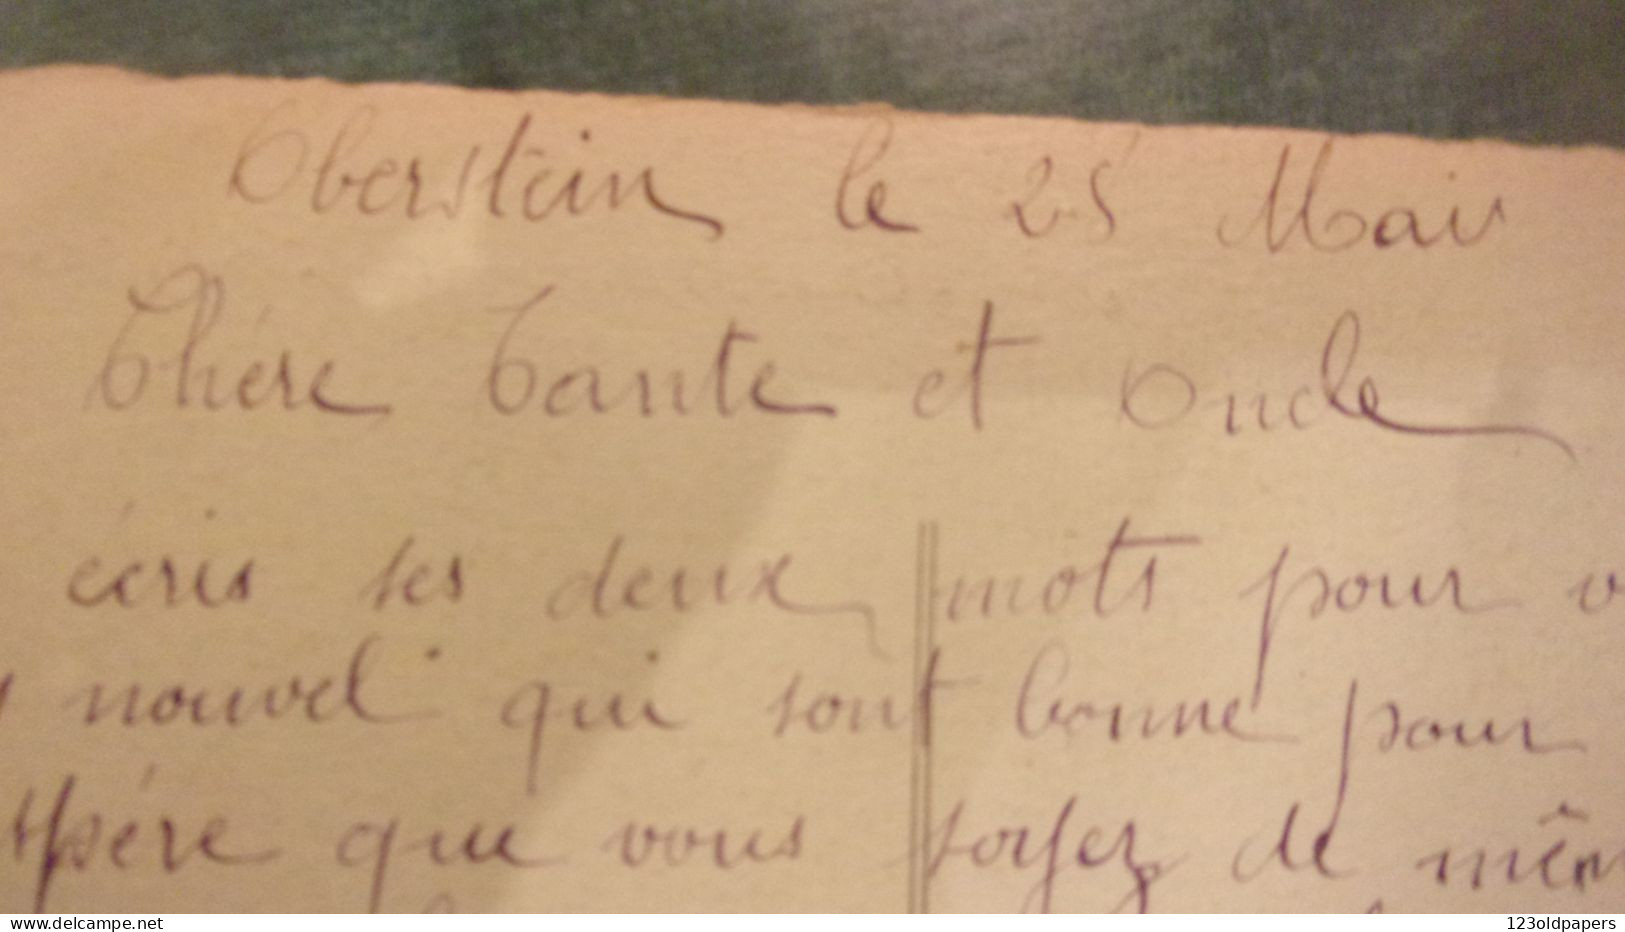 Oberstein le 25 Mais
Chére Tante et Oncle
écris ses deux mots pour
nouvel qui sont bonne pour
espére que vous soyez de mêm
www.delcampe.net
123oldpapers